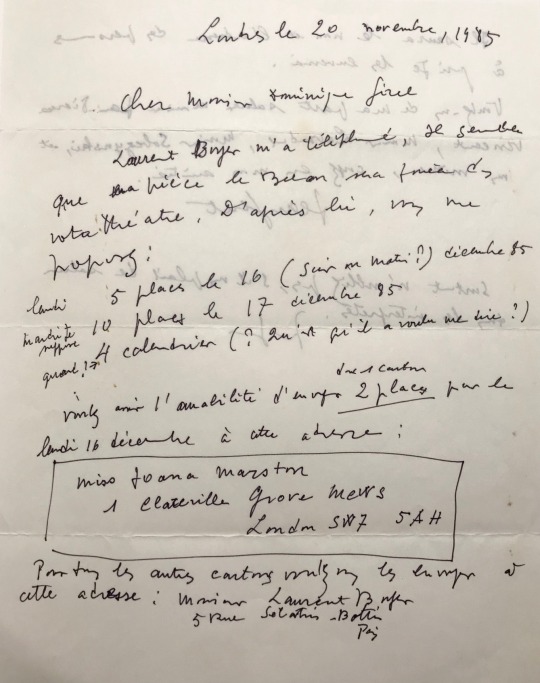 Londres le 20 novembre, 1985
Cher Monsieur Dominique
Laurent Boyer m'a téléphoné, il semble
que ma pièce le Balcon sera jouée ds
votre théâtre, D'après lui, vous me
proposez :
lundi 5 places le 16 (soir ou matin?) décembre 85
mardi je suppose 10 places le 17 décembre 85
quant, 17 4 calendrier (? Qu'est qu'il a voulu me dire?)
voulez avoir l'amabilité d'envoyer 2 places pour le
donc 1 carton
lundi 16 décembre à cette adresse :
Miss Joana Marston
1 Grove Mews
London SW7 5AH
Pour tous les autres cartons voulez vous les envoyer à
cette adresse : Monsieur Laurent Boyer
5 rue Sébastien-Bottin
Paris